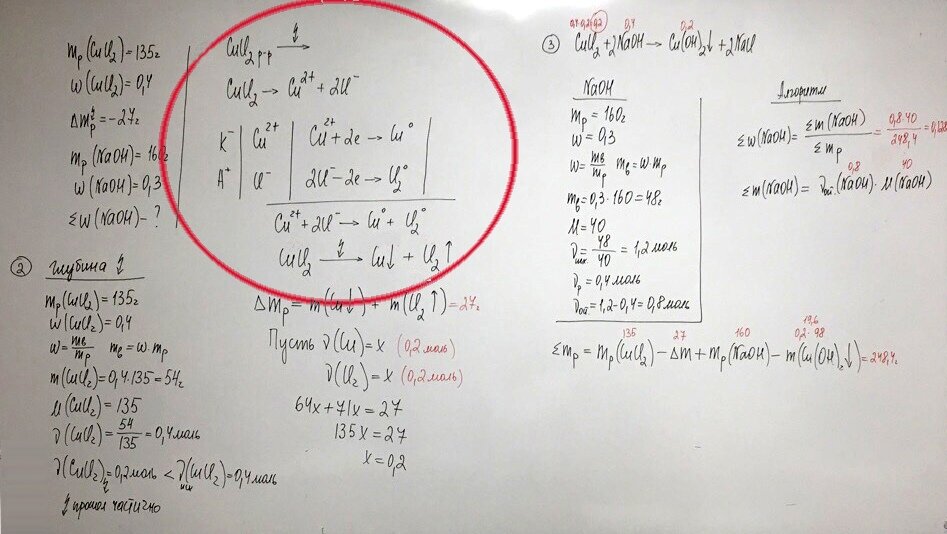 mр(CuCl₂)=135г
w(CuCl₂)=0,4
Δmр↯=-27г
mр(NaOH)=160г
w(NaOH)=0,3
Σw(NaOH)-?
CuCl₂ р-р ↯→
CuCl₂ → Cu²⁺ + 2Cl⁻
K⁻ | Cu²⁺ | Cu²⁺+2e → Cu⁰
A⁺ | Cl⁻ | 2Cl⁻-2e → Cl₂⁰
Cu²⁺+2Cl⁻ → Cu⁰ + Cl₂⁰
CuCl₂ ↯→ Cu↓ + Cl₂↑
② глубина ↯
mр(CuCl₂)=135г
w(CuCl₂)=0,4
w=mв/mр mв=w·mр
m(CuCl₂)=0,4·135=54г
M(CuCl₂)=135
ν(CuCl₂)=54/135=0,4моль
ν(CuCl₂)↯=0,2моль < νисх(CuCl₂)=0,4моль
↯ прошел частично
Δmр = m(Cu↓) + m(Cl₂↑)=27г
Пусть ν(Cu)=x (0,2моль)
ν(Cl₂)=x (0,2моль)
64x+71x=27
135x=27
x=0,2
0,4-0,2=0,2 0,4 0,2
③ CuCl₂+2NaOH→Cu(OH)₂↓+2NaCl
NaOH
mр=160г
w=0,3
w=mв/mр mв=w·mр
mв=0,3·160=48г
M=40
νисх=48/40=1,2моль
νр=0,4моль
νост=1,2-0,4=0,8моль
Алгоритм
Σw(NaOH)=Σm(NaOH)/Σmр=0,8·40/248,4=0,128
0,8 40
Σm(NaOH)=νост.(NaOH)·M(NaOH)
19,6
135 27 160 0,2·98
Σmр=mр(CuCl₂)-Δm+mр(NaOH)-m(Cu(OH)₂↓)=248,4г